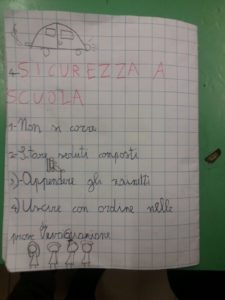 SICUREZZA A
SCUOLA
1-Non si corre
2-Stare seduti composti
3)-Appendere gli zainetti
4)Uscire con ordine nelle
prove